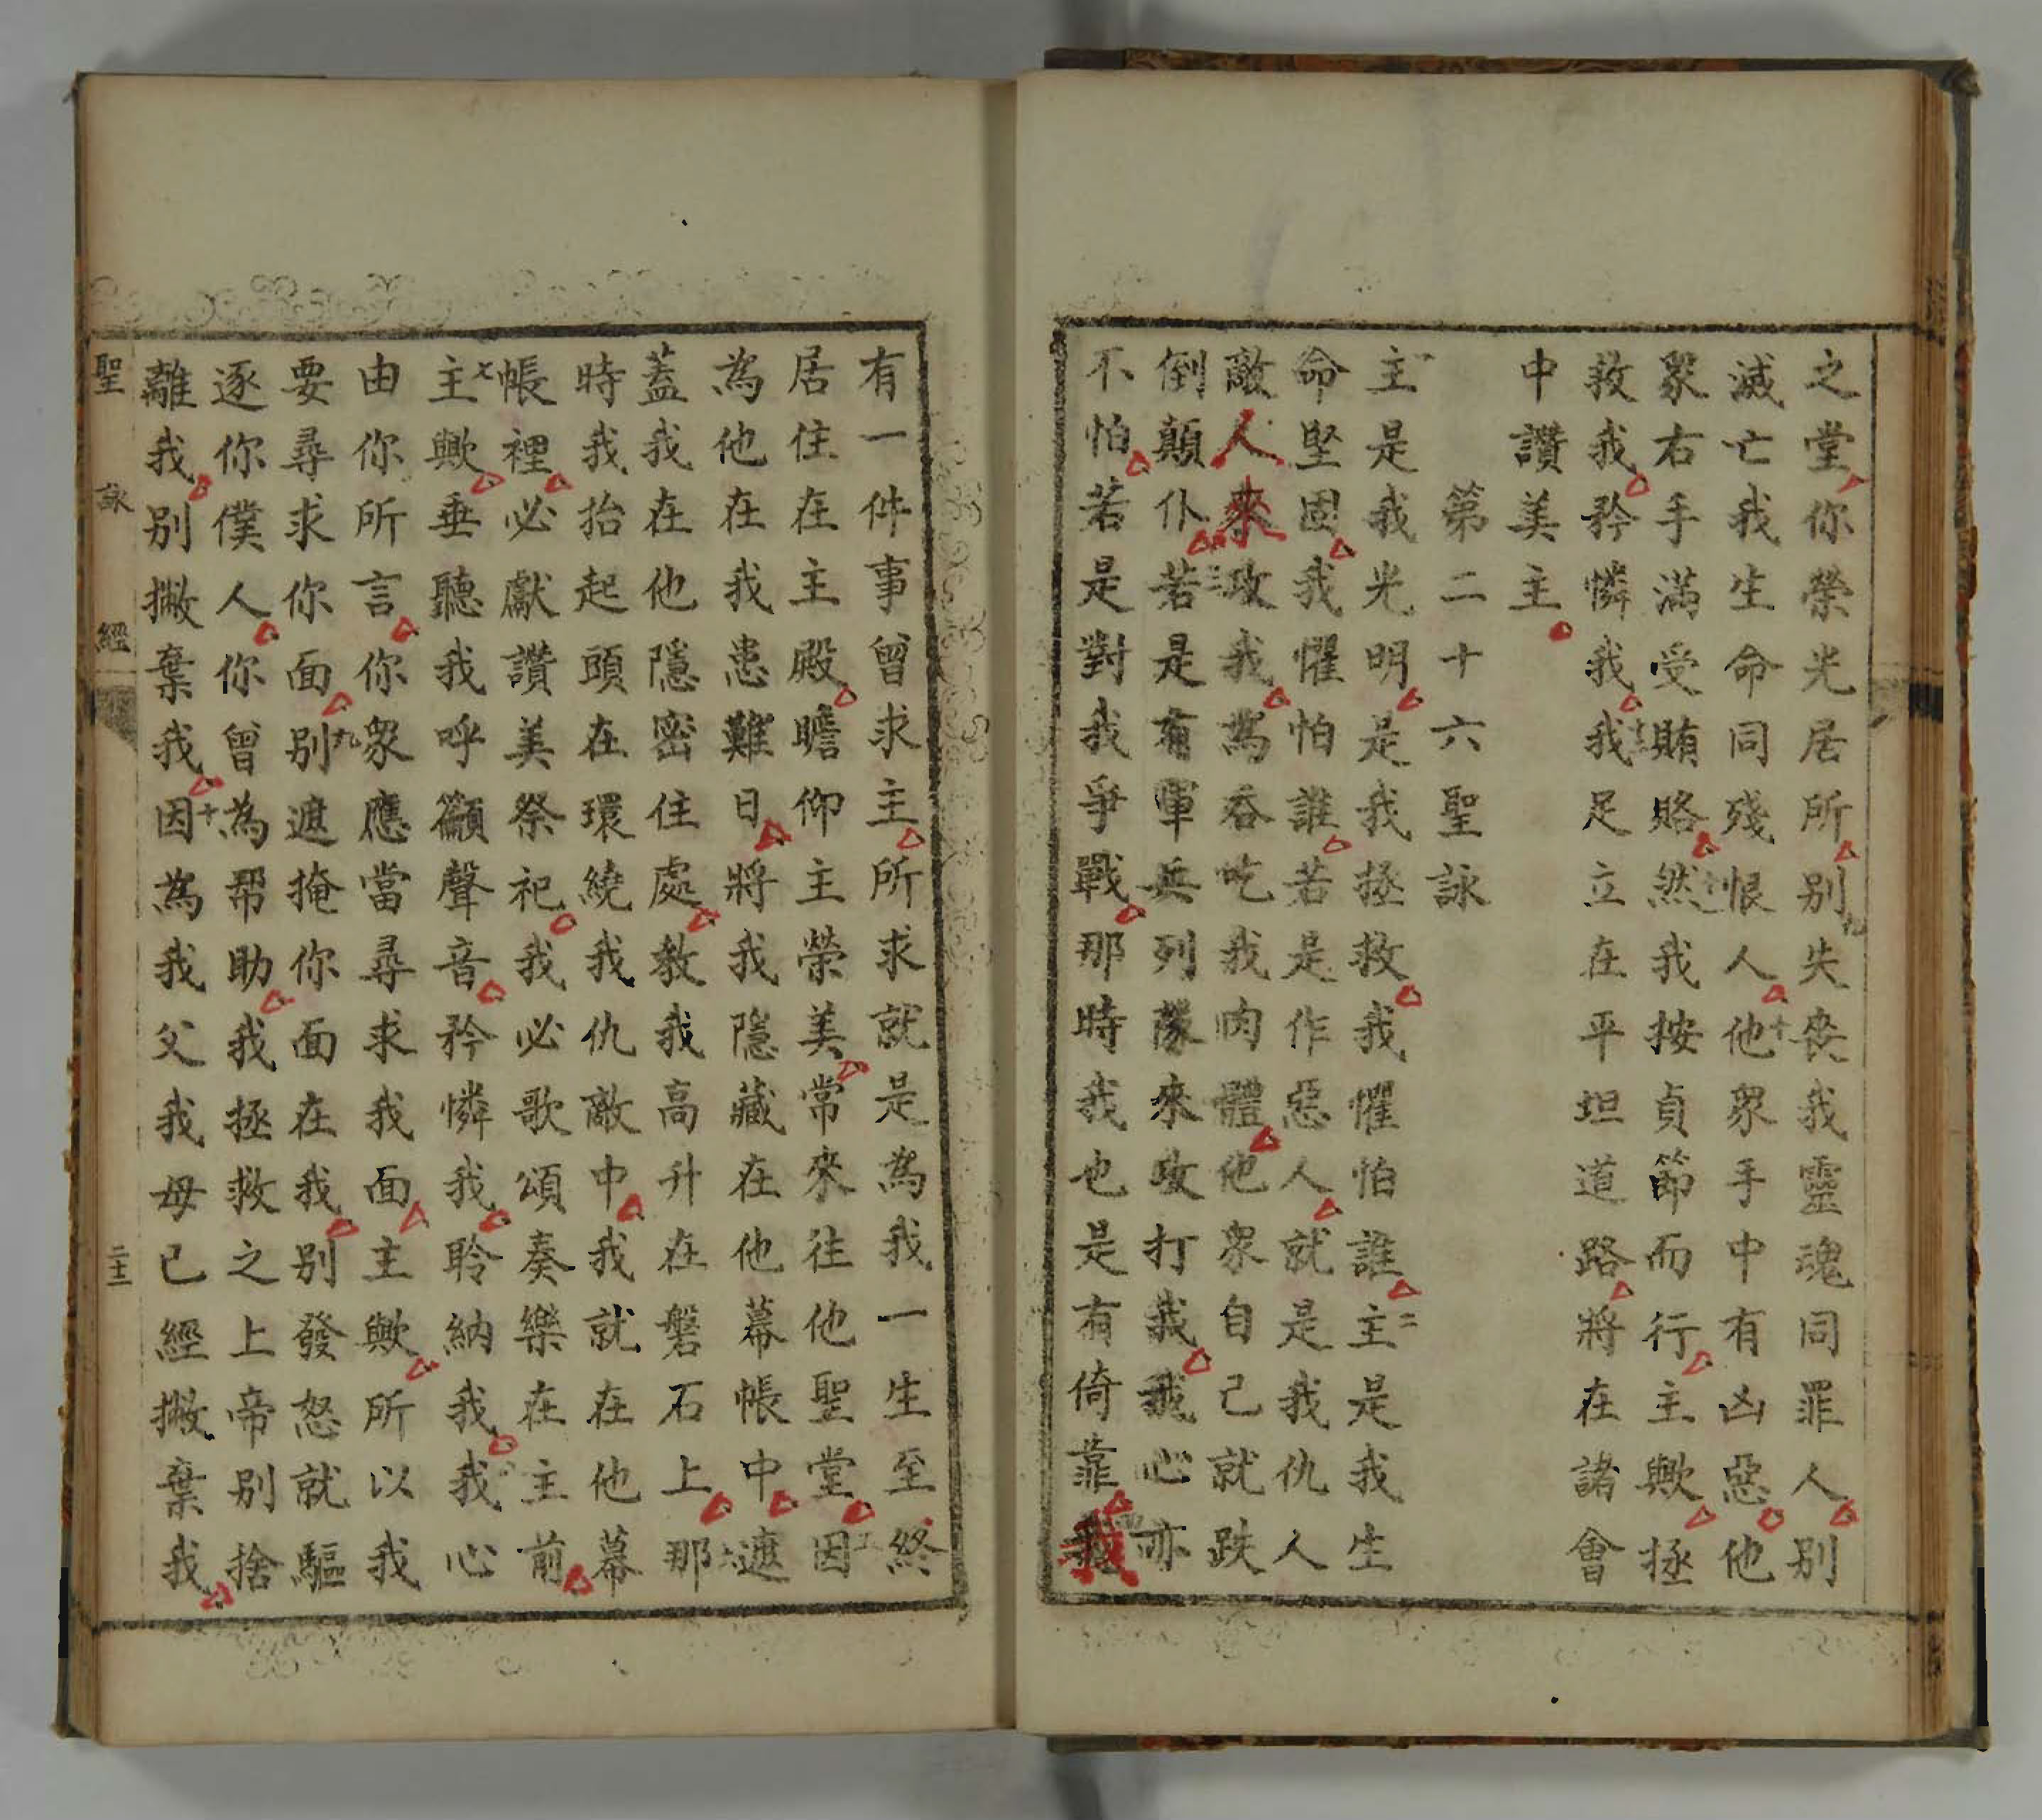 之堂你榮光居所別失丧我靈魂同罪人別
滅亡我生命同殘恨人他衆手中有凶惡他
衆右手滿受賄賂然我按貞節而行主歟拯
救我矜憐我我足立在平坦道路將在諸會
中讚美主
第二十六聖詠
主是我光明是我拯救我懼怕誰主是我生
命堅固我懼怕誰若是作惡人就是我仇人
敵人來攻我為吞吃我肉體他衆自己就跌
倒顛仆若是有軍兵列隊來攻打我我心亦
不怕若是對我爭戰那時我也是有倚靠我
有一件事曾求主所求就是為我一生至終
居住在主殿瞻仰主榮美常來往他聖堂因
為他在我患難日將我隱藏在他幕帳中遮
蓋我在他隱密住處教我高升在磐石上那
時我抬起頭在環繞我仇敵中我就在他幕
帳裡必獻讚美祭祀我必歌頌奏樂在主前
主歟垂聽我呼籲聲音矜憐我聆納我我心
由你所言你衆應當尋求我面主歟所以我
要尋求你面別遮掩你面在我別發怒就驅
逐你僕人你曾為帮助我拯救之上帝別捨
離我別撇棄我因為我父我母已經撇棄我
聖詠經 二十三